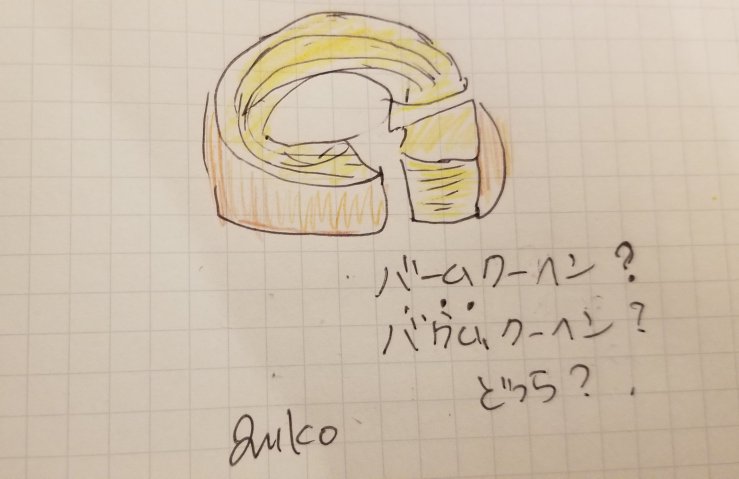 バームクーヘン?
バウムクーヘン?
どっち?